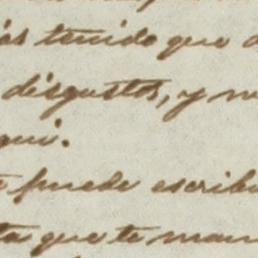 ás tenido que
disgustos, y
qui.
puede escrib
ta que te man